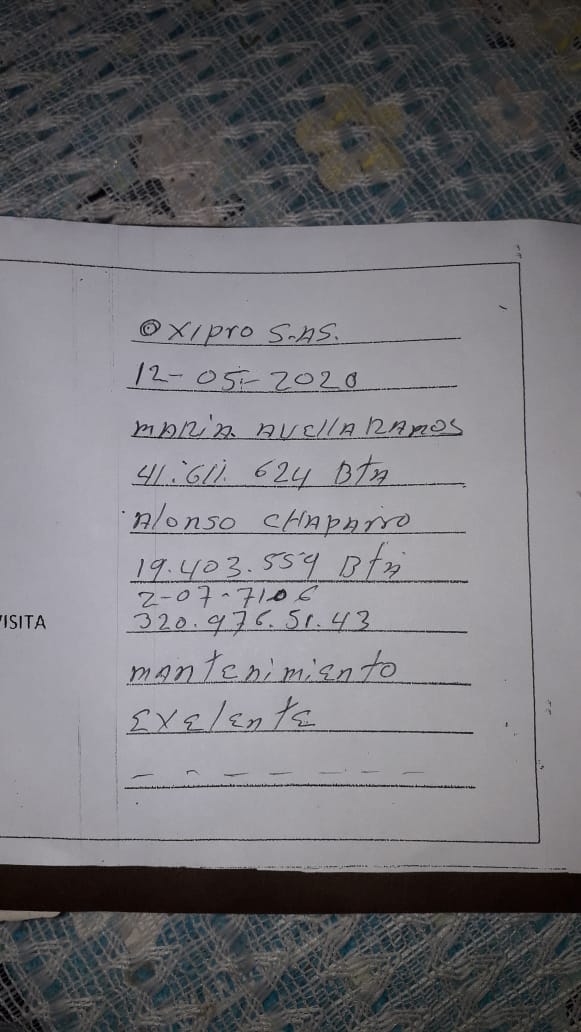 OXIPRO S.AS.
12-05-2020
MARIA AVELLA RAMOS
41.611.624 Btá
Alonso CHAPARRO
19.403.559 Btá
2-07-7106
VISITA
320.976.51.43
mantenimiento
Exelente
- - - - - - -